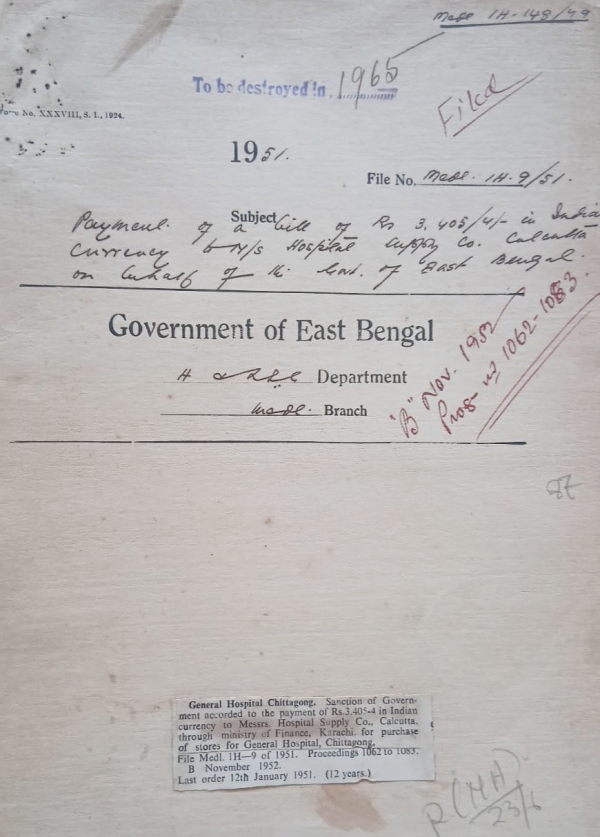 Medl 1H-148/49
To be destroyed in 1965
Filed
Form No. XXXVIII, S. I., 1924.
1951.
File No. Medl. 1H-9/51.
Subject
Payment of a bill of Rs 3,405/4/- in Indian
Currency to M/s Hospital Supply Co. Calcutta
on behalf of the Govt. of East Bengal.
Government of East Bengal
H Department
Medl. Branch
"B" Nov. 1952
Progs 1062-1083.
87
General Hospital Chittagong. Sanction of Govern-
ment accorded to the payment of Rs.3.405-4 in Indian
currency to Messrs. Hospital Supply Co., Calcutta,
through ministry of Finance, Karachi, for purchase
of stores for General Hospital, Chittagong.
File Medl. 1H—9 of 1951. Proceedings 1062 to 1083.
B November 1952.
Last order 12th January 1951. (12 years.)
R(MH)
23/6